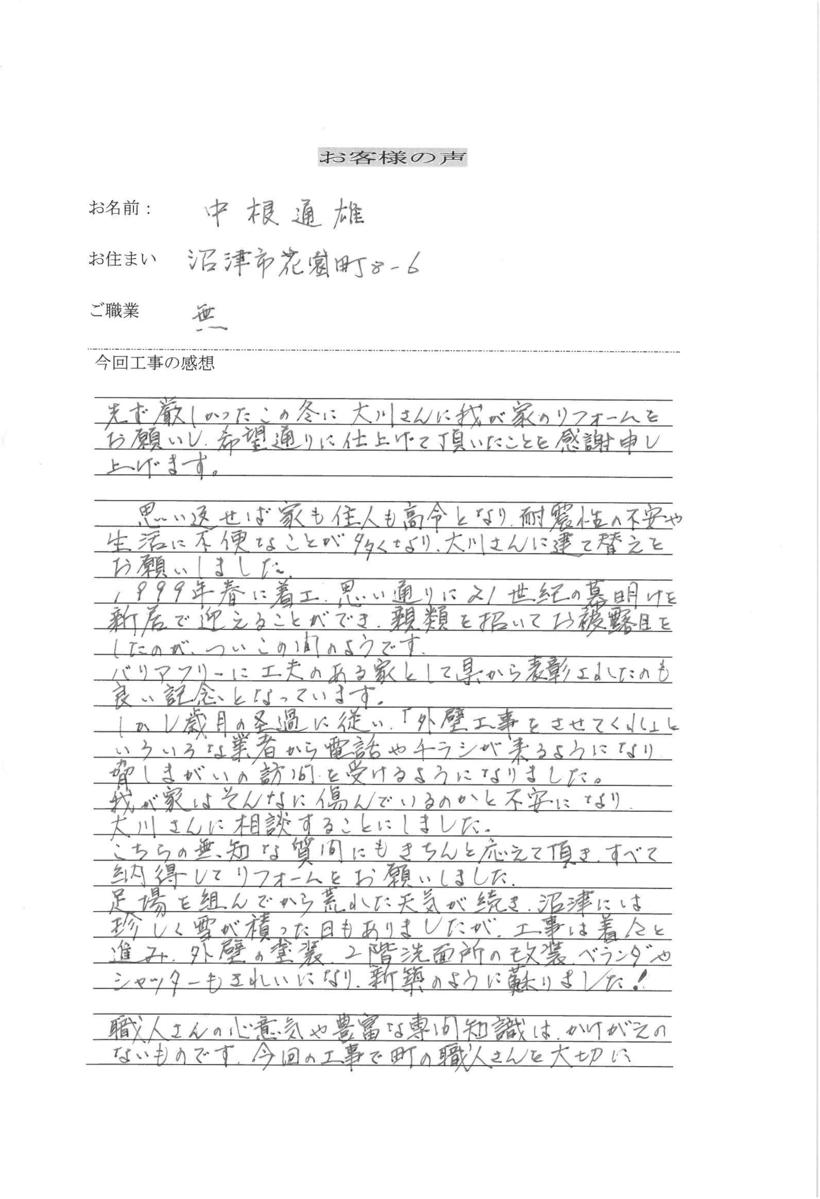 お客様の声
お名前： 中根通雄
お住まい 沼津市花園町8-6
ご職業 無
今回工事の感想
先ず厳しかったこの冬に大川さんに我が家のリフォームを
お願いし、希望通りに仕上げて頂いたことを感謝申し
上げます。
思い返せば家も住人も高令となり、耐震性の不安や
生活に不便なことが多くなり、大川さんに建て替えを
お願いしました。
1999年春に着工、思い通りに21世紀の幕明けを
新居で迎えることができ、親類を招いてお披露目を
したのが、ついこの間のようです。
バリアフリーに工夫のある家として県から表彰されたのも
良い記念となっています。
しかし歳月の経過に従い、「外壁工事をさせてくれ」と
いろいろな業者から電話やチラシが来るようになり
脅しまがいの訪問を受けるようになりました。
我が家はそんなに傷んでいるのかと不安になり、
大川さんに相談することにしました。
こちらの無知な質問にもきちんと応えて頂き、すべて
納得してリフォームをお願いしました。
足場を組んでから荒れた天気が続き、沼津には
珍しく雪が積った日もありましたが、工事は着々と
進み、外壁の塗装、2階洗面所の改装、ベランダや
シャッターもきれいになり、新築のように蘇りました！
職人さんの心意気や豊富な専門知識は、かけがえの
ないものです。今回の工事で町の職人さんを大切に